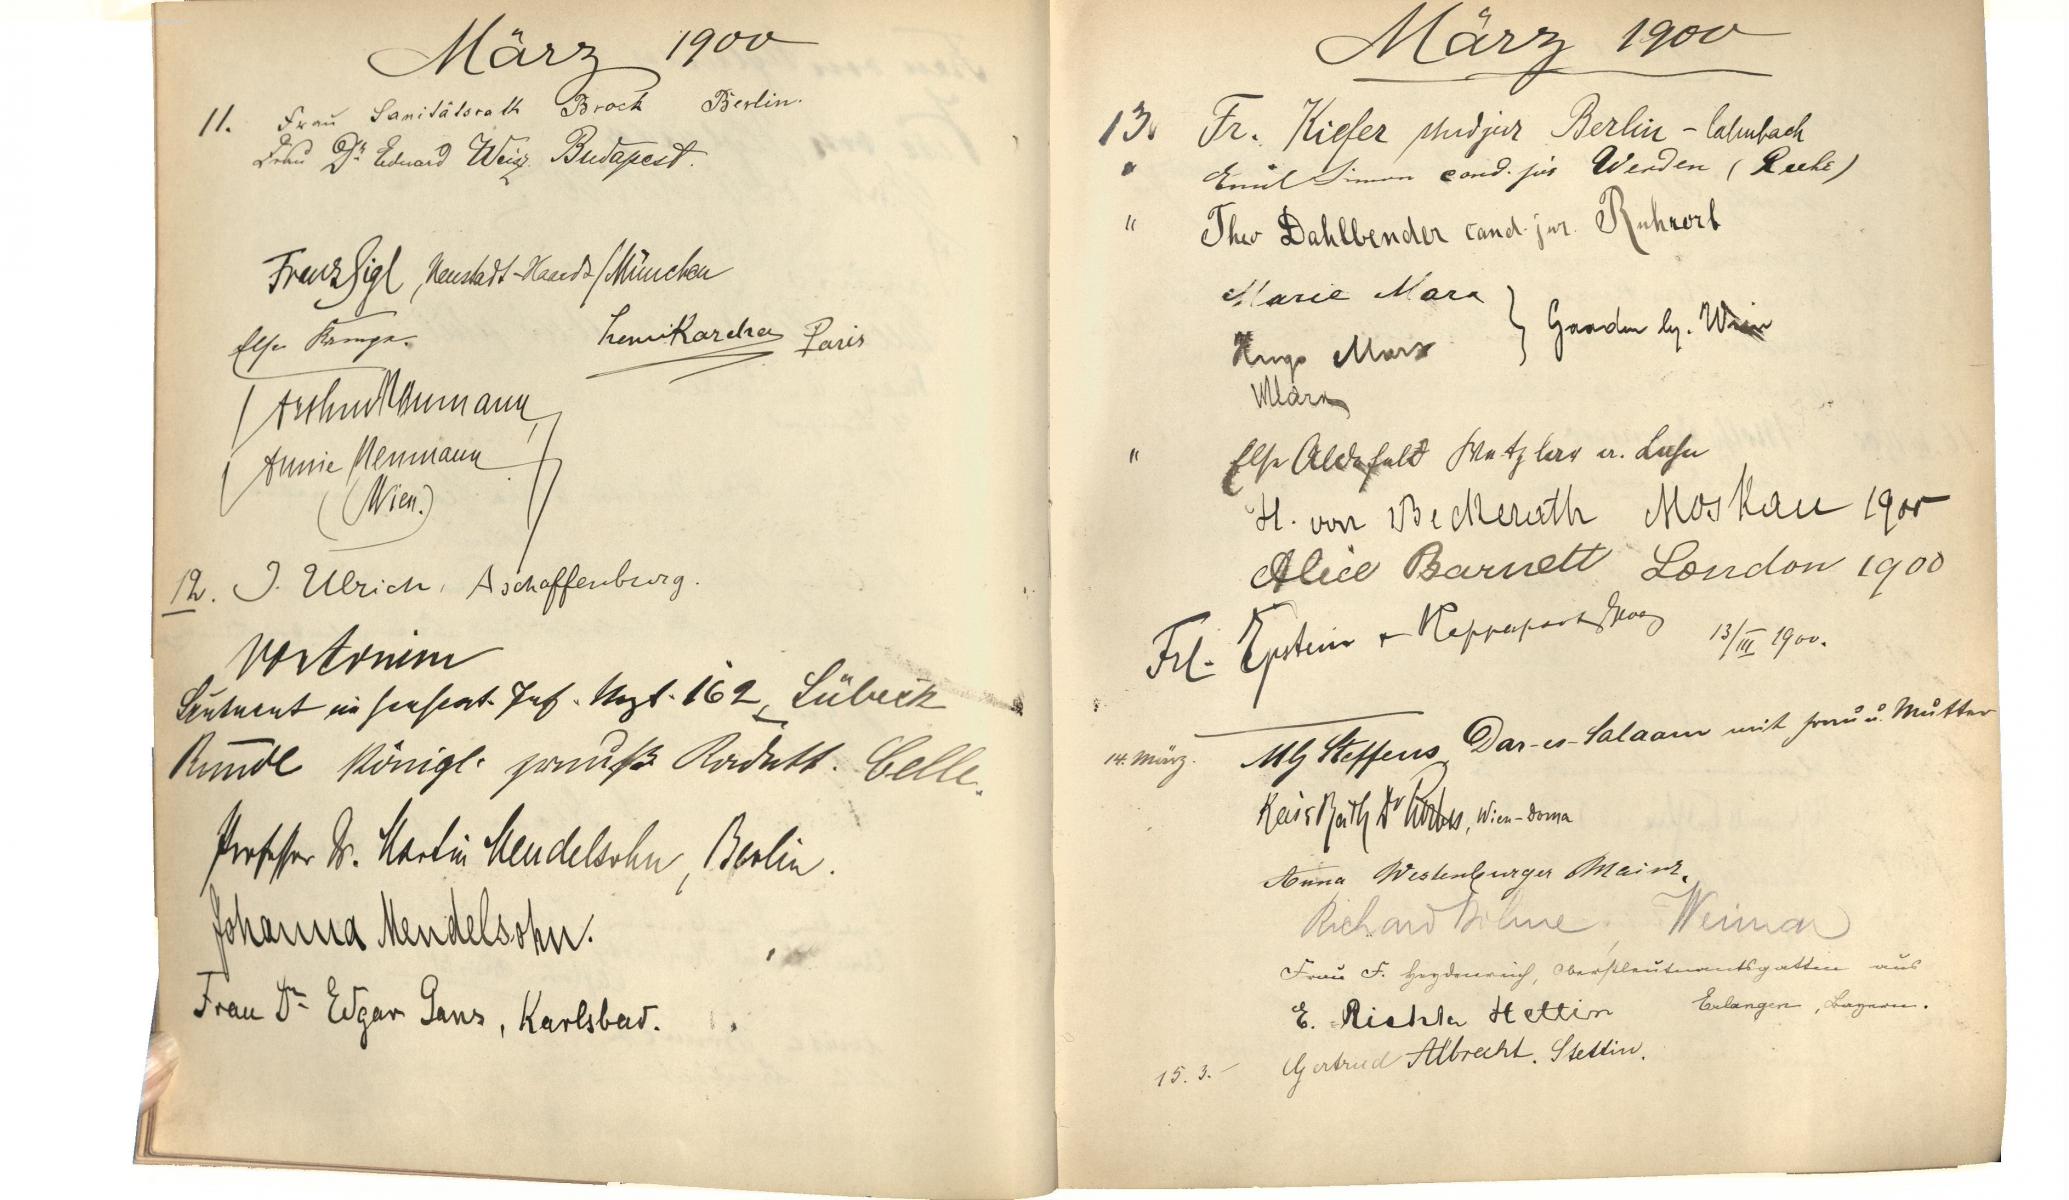 März 1900
11. Frau Sanitätsrath Brock Berlin.
Frau Dr Eduard Weisz Budapest.
Franz Sigl, Neustadt-Haardt/München
Else
Paris
Arthur Neumann
Annie Neumann
(Wien.)
12. J. Ulrich, Aschaffenburg.
Leutnant im Inf. Regt. 162, Lübeck
Königl. Celle.
Professor Dr. Martin Mendelsohn, Berlin.
Johanna Mendelsohn.
Frau Dr Edgar Ganz, Karlsbad.
März 1900
13. Fr. Kiefer stud jur Berlin - Calmbach
" Emil Simon cand. jur Werden (Ruhr)
" Theo Dahlbender cand. jur. Ruhrort
Marie Marx
Hugo Marx } Gaaden by. Wien
Marx
" Else Wetzlar a. Lahn
H. von Beckerath Moskau 1900
Alice Barnett London 1900
Frl. Epstein + Rappaport 13/III 1900.
14. März. Steffens, Dar-es-Salaam mit Frau u. Mutter
Kais Rath Dr, Wien-Dorna
Anna Westenburger Mainz.
Richard Böhme, Weimar
Frau F. Heydenreich, Oberstleutnantsgattin aus
E. Richter Stettin Erlangen, Bayern.
15. 3. - Gertrud Albrecht. Stettin.